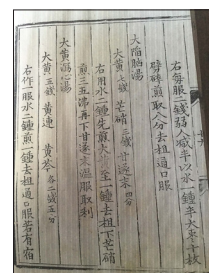 右每服一錢弱人減半以水一鍾半大棗十枚
劈碎煎取八分去柤適口服
大陷胸湯
大黃七錢 芒硝三錢 甘遂末四分
右用水二鍾先煎大黃至一鍾去柤下芒硝
煎三五沸再下甘遂末溫服取利
大黃瀉心湯
大黃五錢 黃連 黃芩各二錢五分
右作一服水二鍾煎一鍾去柤適口服若有宿